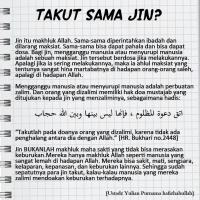 TAKUT SAMA JIN?
Jin itu makhluk Allah. Sama-sama diperintahkan ibadah dan
dilarang maksiat. Sama-sama bisa dapat pahala dan bisa dapat
dosa. Bagi jin, mengganggu manusia atau menyurupi manusia
adalah sebuah maksiat. Jin tersebut berdosa jika melakukannya.
Apalagi jika Ia sering melakukannya, maka Ia ahlul maksiat yang
tentunya sangat hina martabatnya di hadapan orang-orang saleh,
apalagi di hadapan Allah.
Mengganggu manusia atau menyurupi manusia adalah perbuatan
zalim. Dan orang yang dizalimi memiliki hak doa mustajab yang
ditujukan kepada jin yang menzaliminya, sebagaimana hadis:
اتق دعوة المظلوم ، فإنها ليس بينها وبين الله حجاب
"Takutlah pada doanya orang yang dizalimi, karena tidak ada
penghalang antara dia dengan Allah." [HR. Bukhari no.2448]
Jin BUKANLAH makhluk maha sakti yang tidak bisa merasakan
keburukan Mereka hanya makhluk Allah seperti manusia yang
sangat lemah di hadapan Allah. Mereka bisa sakit, mati, sengsara,
kelaparan, kepanasan, dan keburukan lainnya. Sehingga sudah
sepatutnya para jin takut, kalau-kalau manusia yang mereka
zalimi mendoakan keburukan terhadapnya.
[Ustadz Yulian Purnama hafizhahullah]